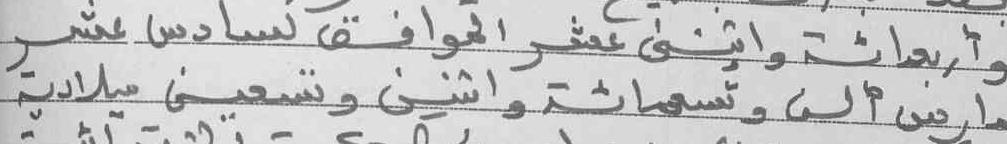 وأربعمائة واثنى عشر الموافق لسادس عشر
مارس ألف وتسعمائة واثنين وتسعين ميلادية